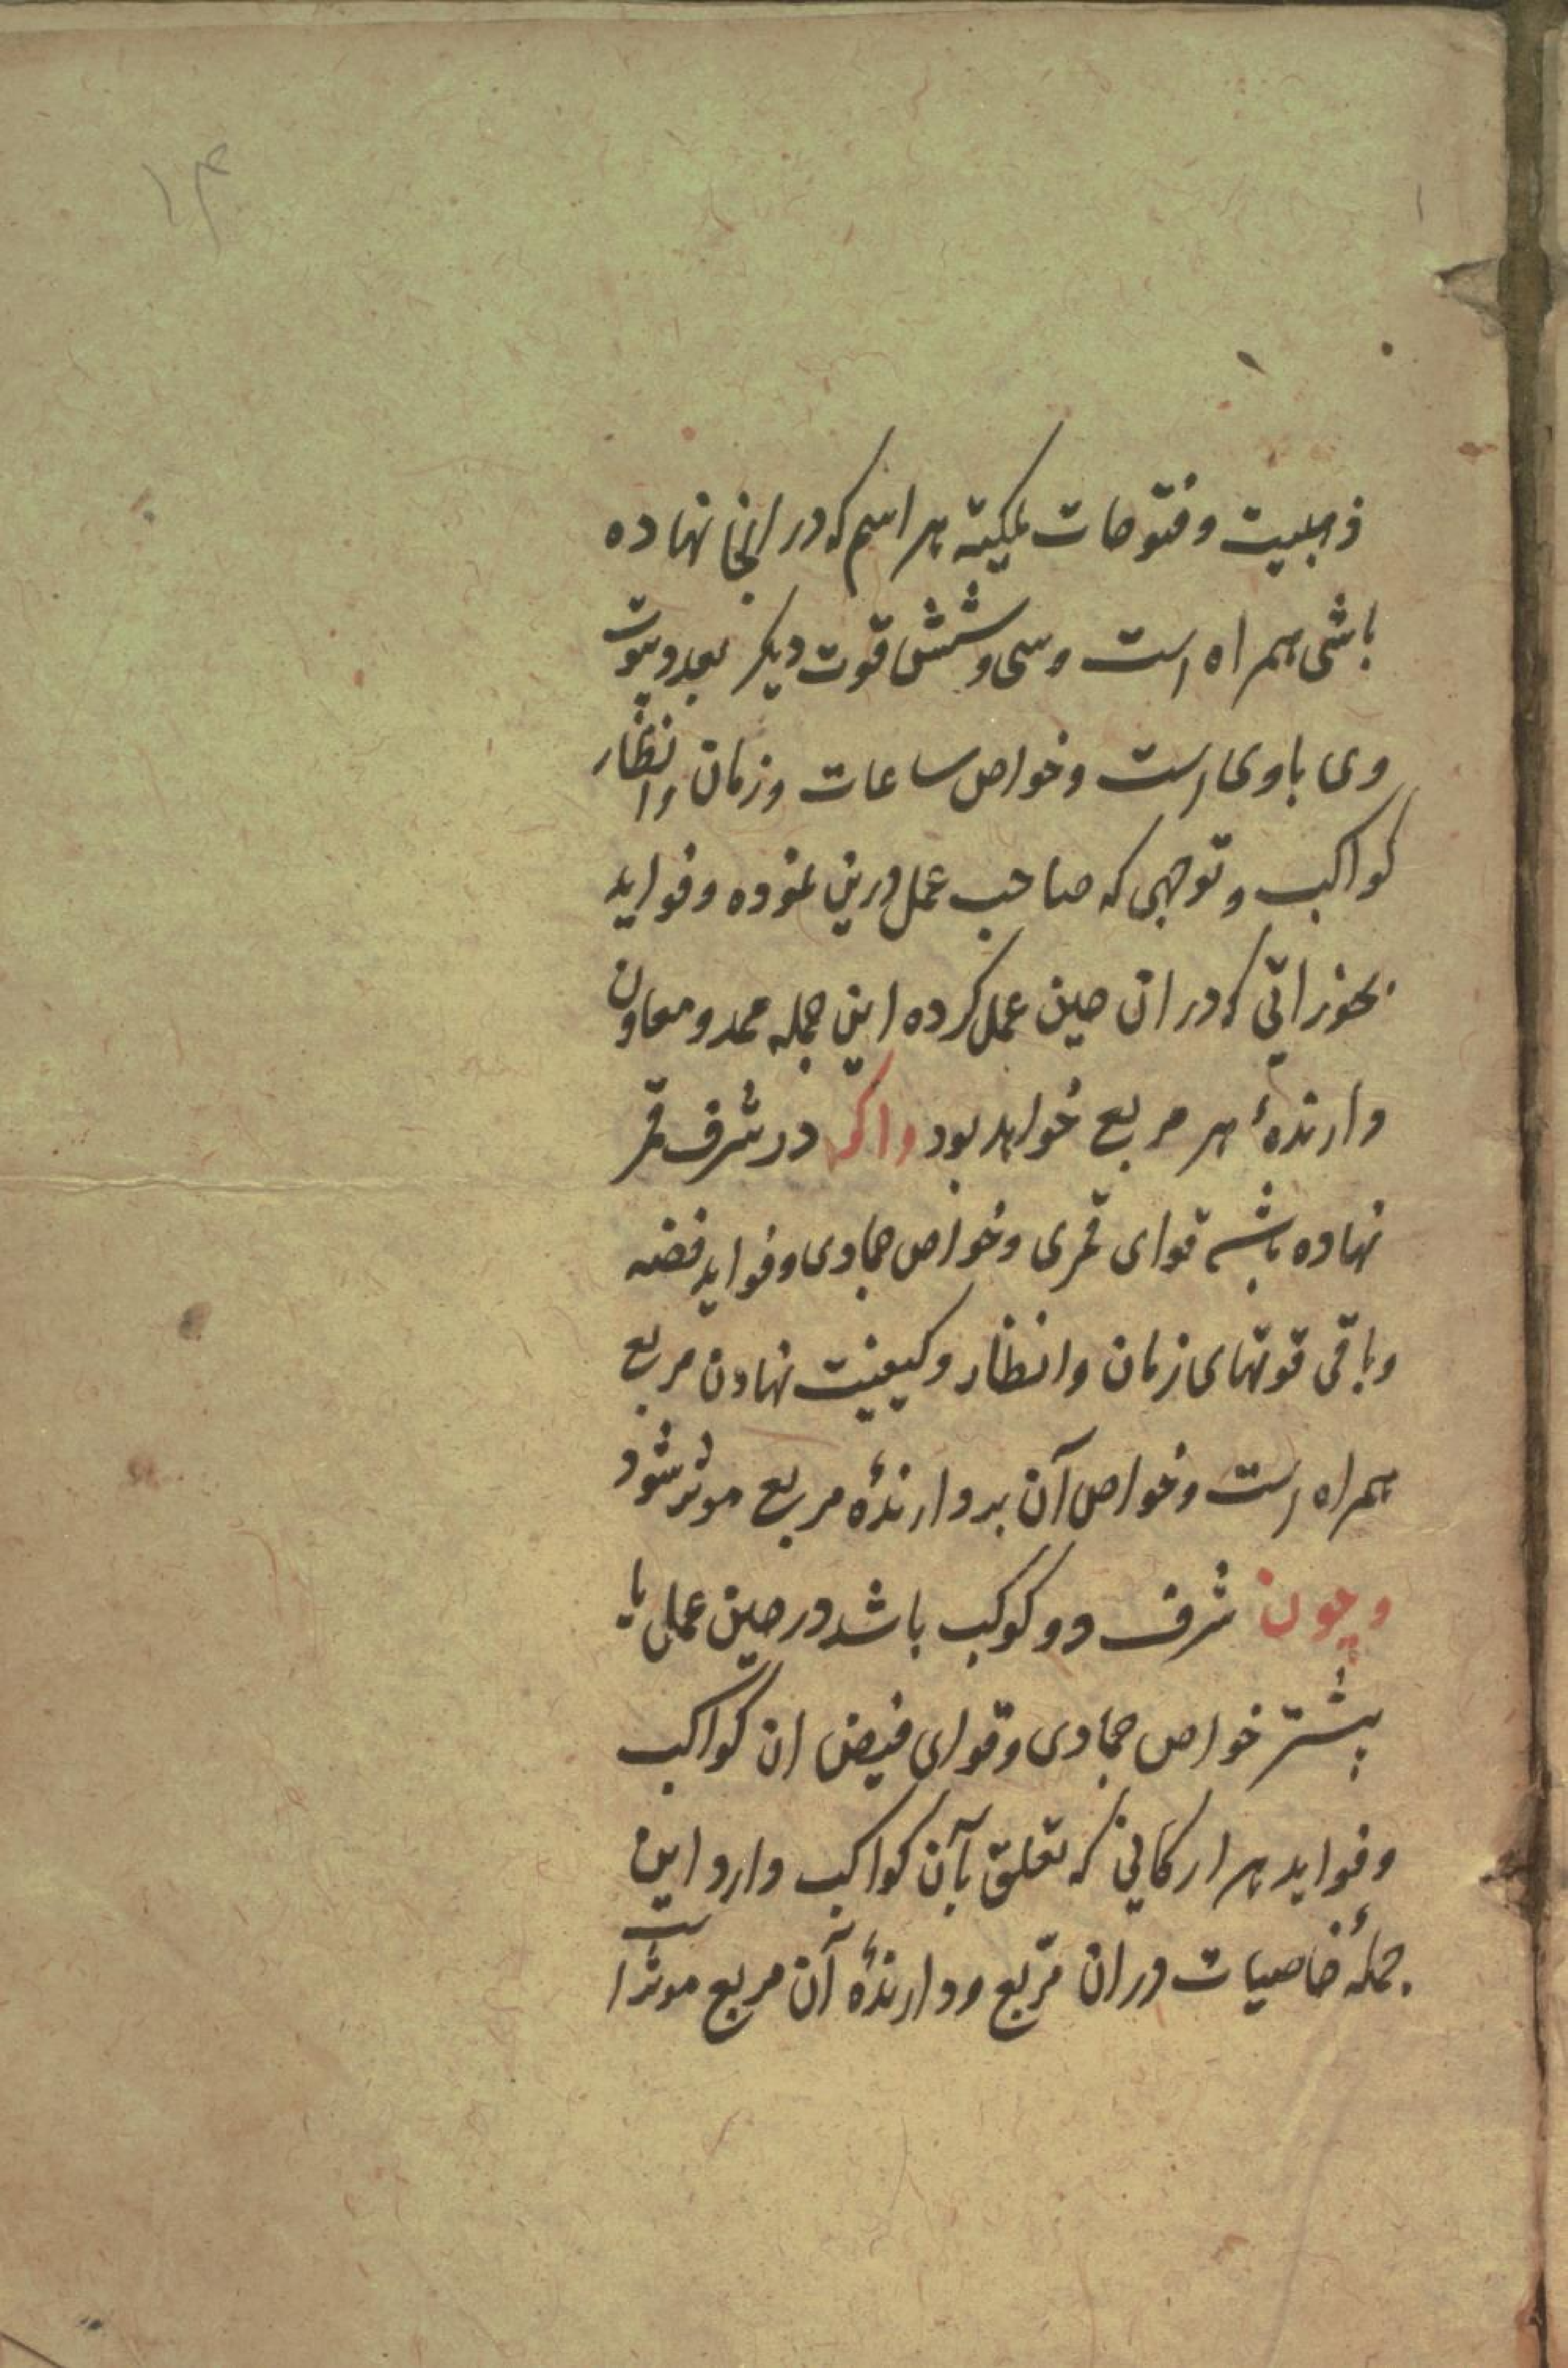 ۱۴
ذهبیت و فتوحات ملکیته هر اسم که در انجا نهاده
باشی همراه است و سی و شش قوت دیکر بعدد بیوت
وی با وی است و خواص ساعات و زمان و انظار
کواکب و توجهی که صاحب عمل درین نموده و فواید
بخوراتی که در ان حین عمل کرده این جمله ممد و معاون
دارندهٔ هر مربع خواهد بود واکر در شرف قمر
نهاده باشی قوای قمری و خواص جمادی و فواید فضه
و باقی قوتهای زمان و انظار و کیفیت نهادن مربع
همراه است و خواص آن بر دارندهٔ مربع موثر شود
وچون شرف دو کوکب باشد در حین عمل یا
پیشتر خواص جمادی و قوای فیض ان کواکب
و فواید هر ارکانی که تعلق بآن کواکب دارد این
جملهٔ خاصیات در ان مربع و دارندهٔ آن مربع موثر است